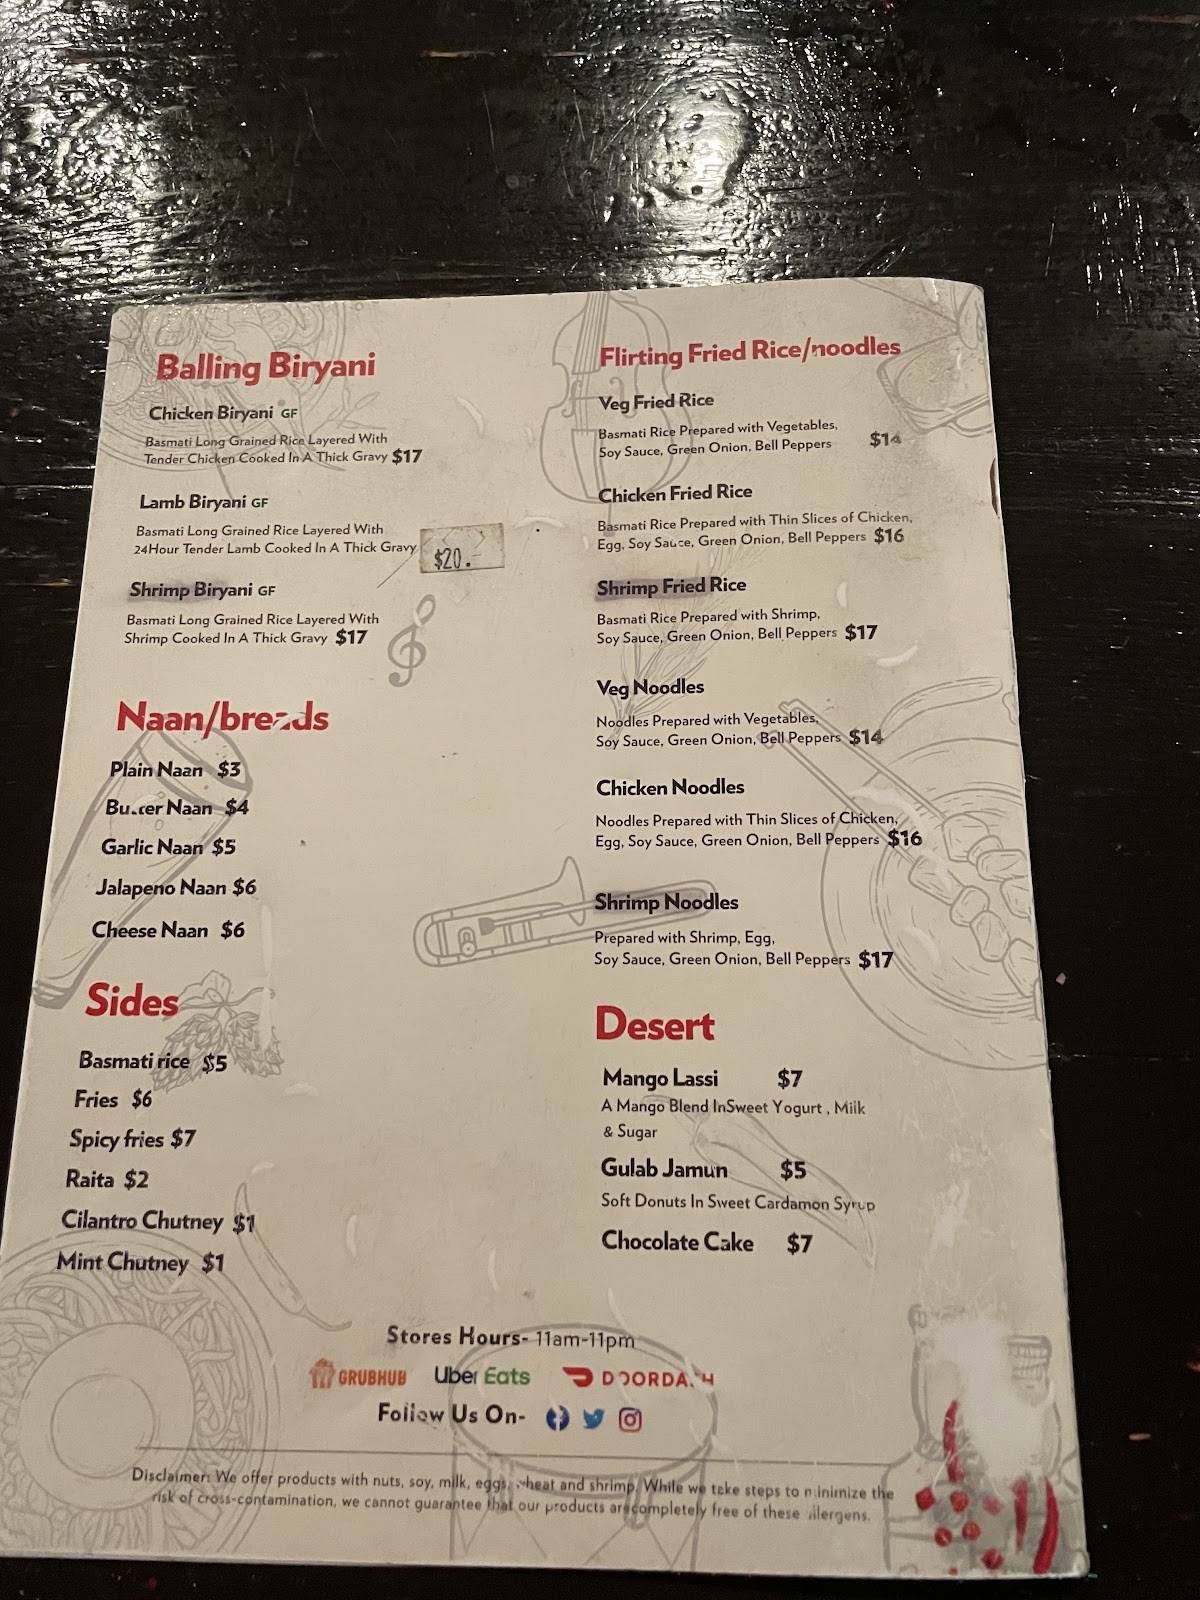 Balling Biryani
Chicken Biryani GF
Basmati Long Grained Rice Layered With
Tender Chicken Cooked In A Thick Gravy $17
Lamb Biryani GF
Basmati Long Grained Rice Layered With
24Hour Tender Lamb Cooked In A Thick Gravy $20.-
Shrimp Biryani GF
Basmati Long Grained Rice Layered With
Shrimp Cooked In A Thick Gravy $17
Naan/breads
Plain Naan $3
Butter Naan $4
Garlic Naan $5
Jalapeno Naan $6
Cheese Naan $6
Sides
Basmati rice $5
Fries $6
Spicy fries $7
Raita $2
Cilantro Chutney $1
Mint Chutney $1
Flirting Fried Rice/noodles
Veg Fried Rice
Basmati Rice Prepared with Vegetables,
Soy Sauce, Green Onion, Bell Peppers $14
Chicken Fried Rice
Basmati Rice Prepared with Thin Slices of Chicken,
Egg, Soy Sauce, Green Onion, Bell Peppers $16
Shrimp Fried Rice
Basmati Rice Prepared with Shrimp,
Soy Sauce, Green Onion, Bell Peppers $17
Veg Noodles
Noodles Prepared with Vegetables,
Soy Sauce, Green Onion, Bell Peppers $14
Chicken Noodles
Noodles Prepared with Thin Slices of Chicken,
Egg, Soy Sauce, Green Onion, Bell Peppers $16
Shrimp Noodles
Prepared with Shrimp, Egg,
Soy Sauce, Green Onion, Bell Peppers $17
Desert
Mango Lassi $7
A Mango Blend InSweet Yogurt , Milk
& Sugar
Gulab Jamun $5
Soft Donuts In Sweet Cardamon Syrup
Chocolate Cake $7
Stores Hours- 11am-11pm
GRUBHUB Uber Eats DOORDASH
Follow Us On-
Disclaimer: We offer products with nuts, soy, milk, eggs, wheat and shrimp. While we take steps to minimize the
risk of cross-contamination, we cannot guarantee that our products are completely free of these allergens.